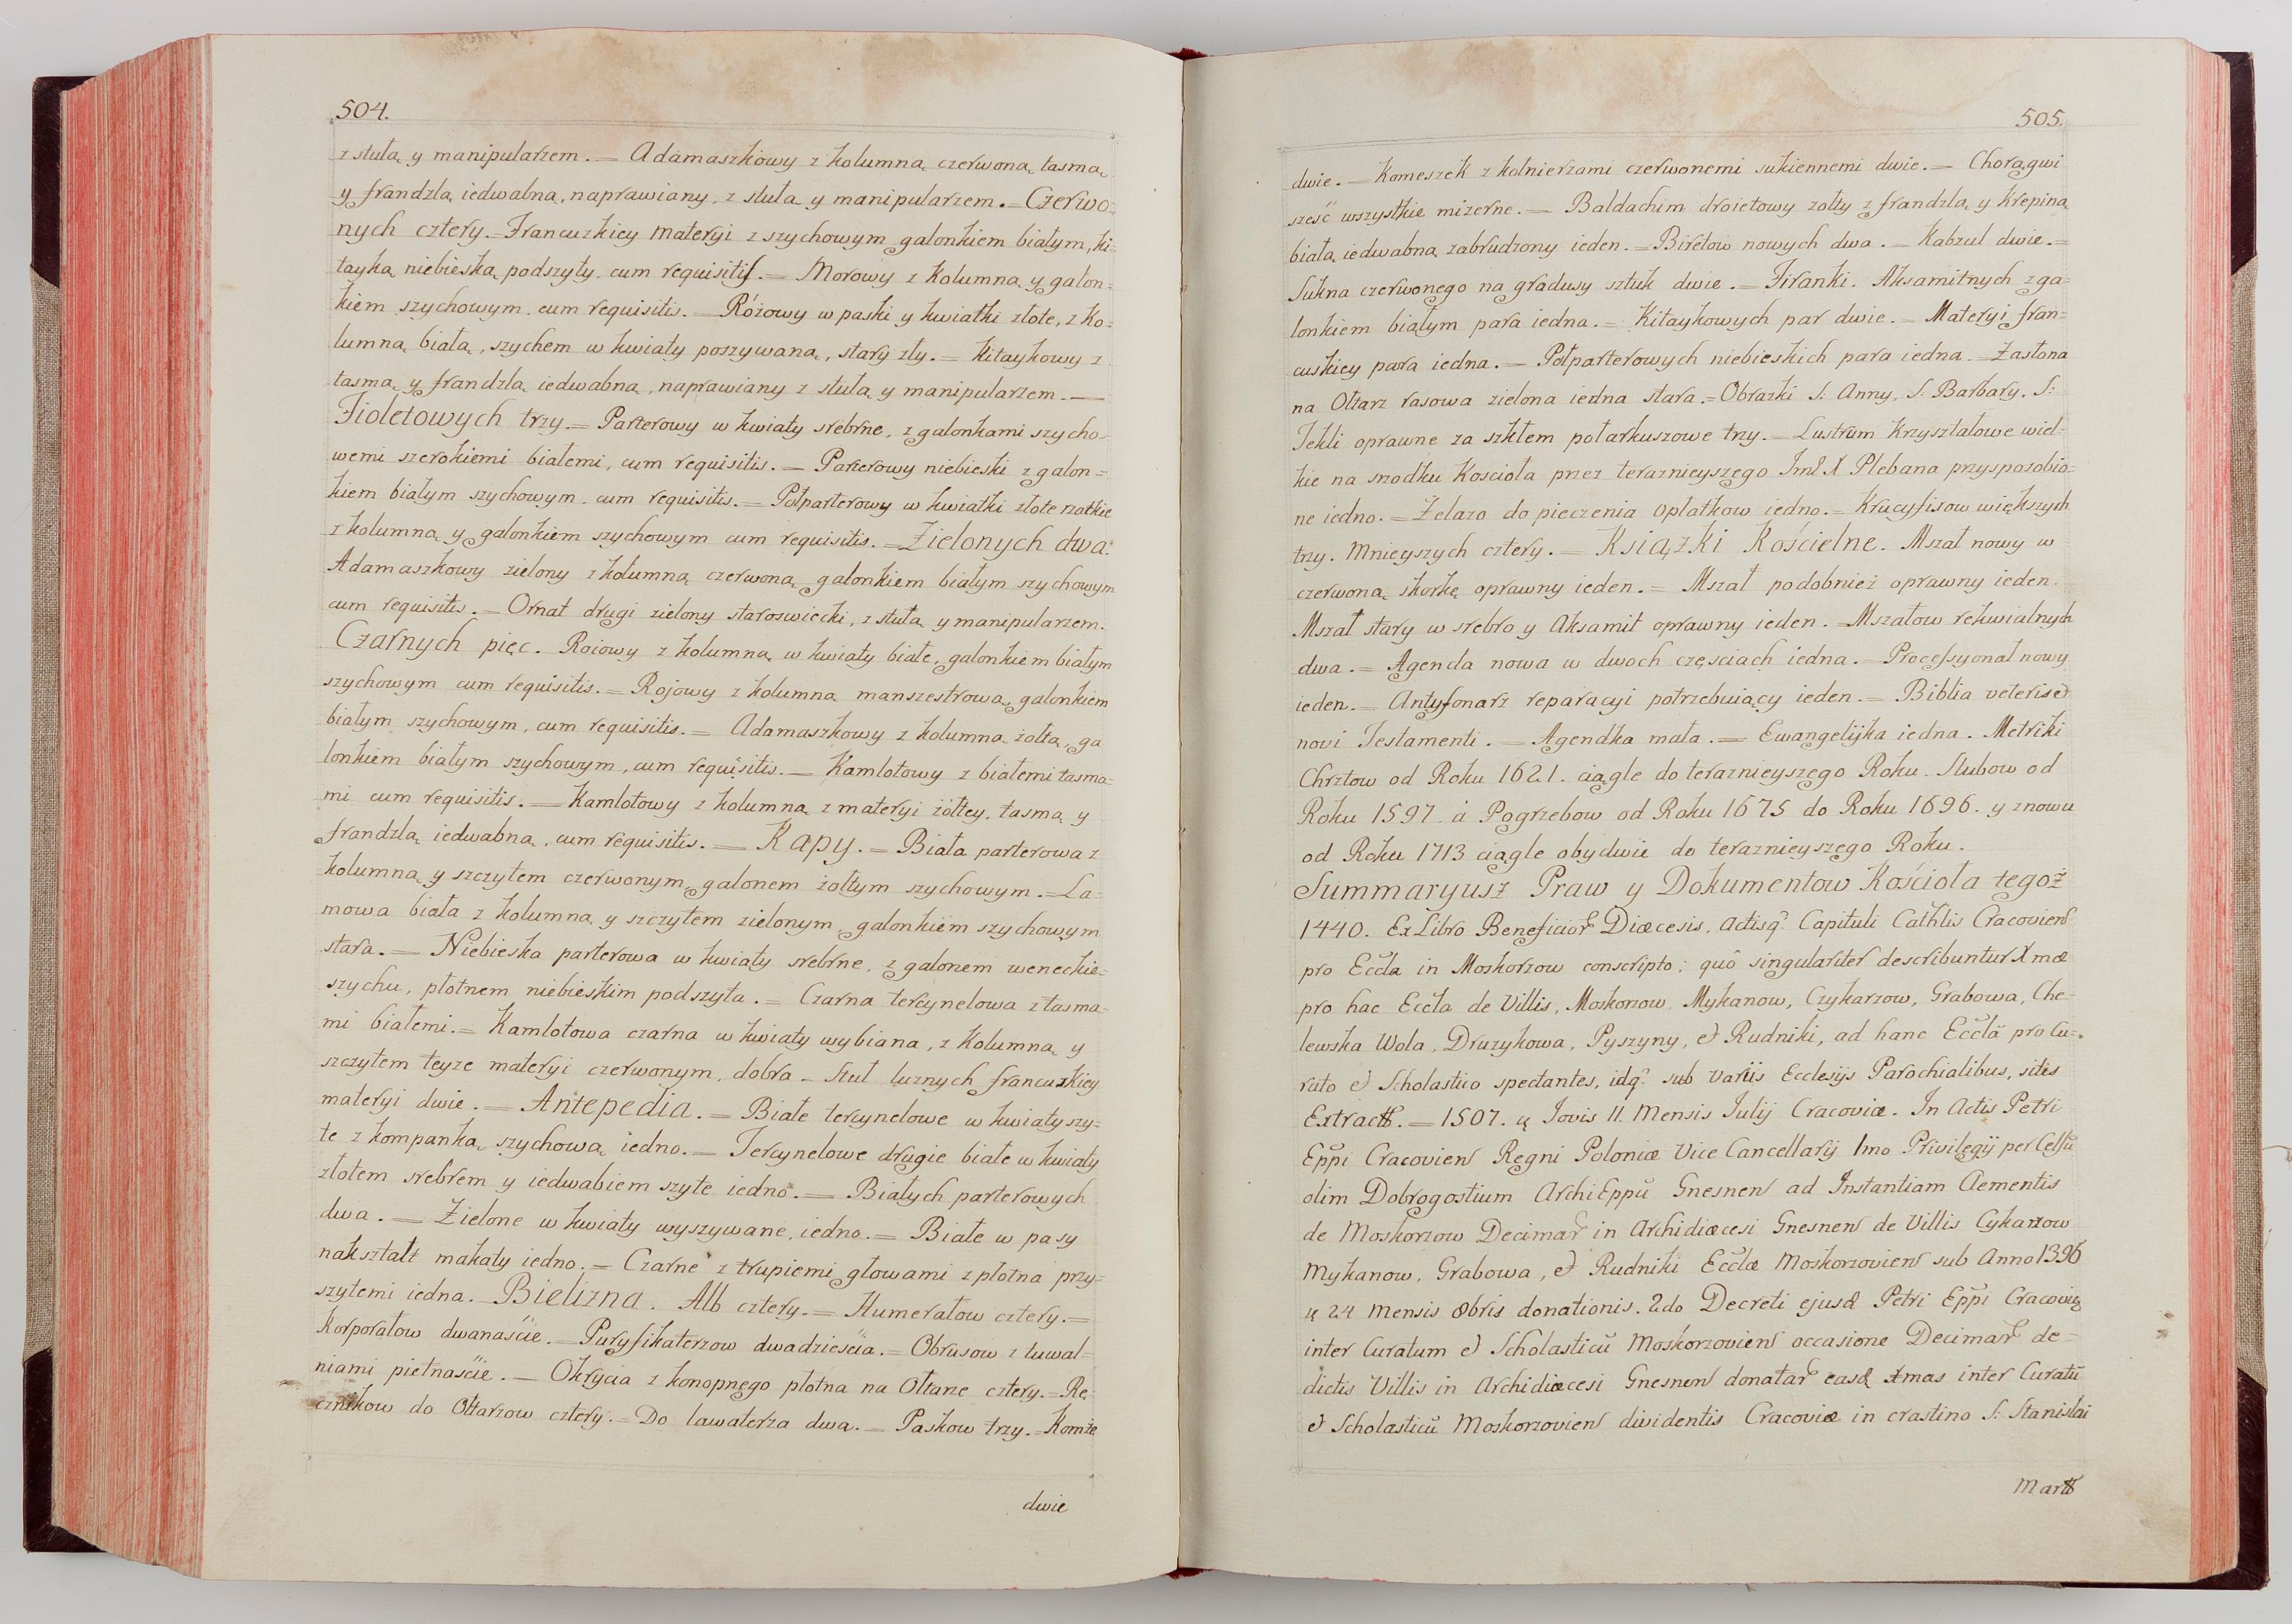 504.
z stułą y manipularzem. = Adamaszkowy z kolumną czerwoną, tasmą
y frandzlą iedwabną, naprawiany, z stułą y manipularzem. = Czerwo=
nych cztery. = Francuzkiey materyi z szychowym galonkiem białym, ki=
tayką niebieską podszyty, cum requisitis. = Morowy z kolumną y galon=
kiem szychowym, cum requisitis. = Rożowy w paski y kwiatki złote, z ko=
lumną białą, szychem w kwiaty poszywaną, stary zły. = Kitaykowy z
tasmą y frandzlą iedwabną, naprawiany z stułą y manipularzem. —
Fioletowych trzy. = Parterowy w kwiaty srebrne, z galonkami szycho=
wemi szerokiemi białemi, cum requisitis. = Parterowy niebieski z galon=
kiem białym szychowym, cum requisitis. = Połparterowy w kwiatki złote rzatkie
z kolumną y galonkiem szychowym cum requisitis. = Zielonych dwa.
Adamaszkowy zielony z kolumną czerwoną galonkiem białym szychowym
cum requisitis. = Ornat drugi zielony staroswiecki, z stułą y manipularzem.
Czarnych pięc. Roiowy z kolumną w kwiaty białe, galonkiem białym
szychowym cum requisitis. = Rojowy z kolumną manszestrową, galonkiem
białym szychowym, cum requisitis. = Adamaszkowy z kolumną żołtą, ga
lonkiem białym szychowym, cum requisitis. = Kamlotowy z białemi tasma=
mi cum requisitis. = Kamlotowy z kolumną z materyi żółtey, tasmą y
frandzlą iedwabną, cum requisitis. = Kapy. = Biała parterowa z
kolumną y szczytem czerwonym galonem żołtym szychowym. = La=
mowa biała z kolumną y szczytem zielonym galonkiem szychowym
stara. = Niebieska parterowa w kwiaty srebrne, z galonem weneckie=
szychu, płotnem niebieskim podszyta. = Czarna tercynelowa z tasma=
mi białemi. = Kamlotowa czarna w kwiaty wybiana, z kolumną y
szczytem teyże materyi czerwonym, dobra = Stuł luznych francuzkiey
materyi dwie. = Antepedia. = Białe tercynelowe w kwiaty szy=
te z kompanką szychową iedno. = Tercynelowe drugie białe w kwiaty
złotem srebrem y iedwabiem szyte iedno. = Białych parterowych
dwa. = Zielone w kwiaty wyszywane, iedno. = Białe w pasy
nakształt makaty iedno. = Czarne z trupiemi głowami z płotna przy=
szytemi iedna. = Bielizna. Alb cztery. = Humerałow cztery. =
Korporałow dwanaście. = Puryfikaterzow dwadzieścia. = Obrusow z tuwal=
niami pietnaście. = Okrycia z konopnego płotna na Ołtarze cztery. = Rę
cznikow do Ołtarzow cztery. = Do lawaterza dwa. = Paskow trzy. = Komże
dwie
505.
dwie. = Komeszek z kolnierzami czerwonemi sukiennemi dwie. = Chorągwi
sześć wszystkie mizerne. = Baldachim droietowy żołty z frandzlą y krepiną
białą iedwabną zabrudzony ieden. = Biretow nowych dwa. = Kabzul dwie. =
Sukna czerwonego na gradusy sztuk dwie. = Firanki. Aksamitnych z ga=
lonkiem białym para iedna. = Kitaykowych par dwie. = Materyi fran=
cuskiey para iedna. = Połparterowych niebieskich para iedna. = Zasłona
na Ołtarz rasowa zielona iedna stara. = Obrazki S: Anny, S: Barbary, S:
Tekli oprawne za szkłem połarkuszowe trzy. = Lustrum Krzyształowe wiel=
kie na srzodku Kościoła przez teraznieyszego JmX Plebana przysposobio=
ne iedno. = Zelazo do pieczenia opłatkow iedno. = Krucyfisow większych
trzy. Mnieyszych cztery. = Książki Kościelne. Mszał nowy w
czerwoną skorkę oprawny ieden. = Mszał podobnież oprawny ieden.
Mszał stary w srebro y Aksamit oprawny ieden. = Mszałow rekwialnych
dwa. = Agenda nowa w dwoch częsciach iedna. = Processyonał nowy
ieden. = Antyfonarz reparacyi potrzebuiący ieden. = Biblia veteris et
novi Testamenti. = Agendka mała. = Ewangelijka iedna. Metriki
Chrztow od Roku 1621. ciągle do teraznieyszego Roku. Slubow od
Roku 1597. á Pogrzebow od Roku 1675 do Roku 1696. y znowu
od Roku 1713 ciągle obydwie do teraznieyszego Roku.
Summaryusz Praw y Dokumentow Kościoła tegoż
1440. Ex Libro Beneficior Diœcesis, actisq Capituli Cathlis Cracovien
pro Eccła in Moskorzow conscripto; quô singulariter describuntur Xmæ
pro hac Eccła de Villis, Moskorzow, Mykanow, Czykarzow, Grabowa, Che=
lewska Wola, Druzykowa, Pyszyny, et Rudniki, ad hanc Eccłā pro Cu=
rato et Scholastico spectantes, idq sub variis Ecclesijs Parochialibus, sites
Extract. = 1507. ę Iovis 11. Mensis Julij Cracoviæ. In Actis Petri
Eppi Cracovien Regni Poloniæ Vice Cancellarij 1mo Privilegij per Celsū
olim Dobrogostium ArchiEppū Gnesnen ad Instantiam Clementis
de Moskorzow Decimar in Archidiæcesi Gnesnen de Villis Cykarzow
Mykanow, Grabowa, et Rudniki Eccłæ Moskorzovien sub Anno 1396
ę 24 Mensis 8bris donationis. 2do Decreti ejusd Petri Eppi Cracovien
inter Curatum et Scholasticū Moskorzovien occasione Decimar de=
dictis Villis in Archidiæcesi Gnesnen donatar easd Xmas inter Curatū
et Scholasticū Moskorzovien dividentis Cracoviæ in crastino S: Stanislai
Mart